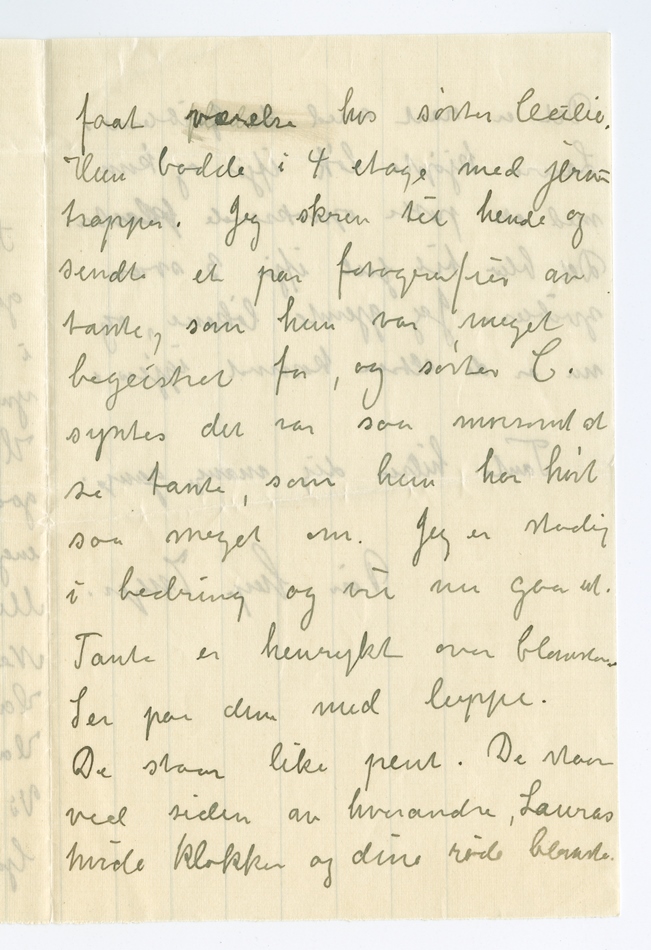 faat værelse hos søster Cecilie.
Hun bodde i 4 etage med jern
trapper. Jeg skrev til hende og
sendte et par fotografier av
tante, som hun var meget
begeistret for, og søster C.
syntes det var saa morsomt at
se tante, som hun har hørt
saa meget om. Jeg er stadig
i bedring og vil nu gaa ut.
Tante er henrykt over blomsten.
Ser paa den med luppe.
De staar like pent. De staar
ved siden av hverandre, Lauras
hvide klokker og dine røde blomster.